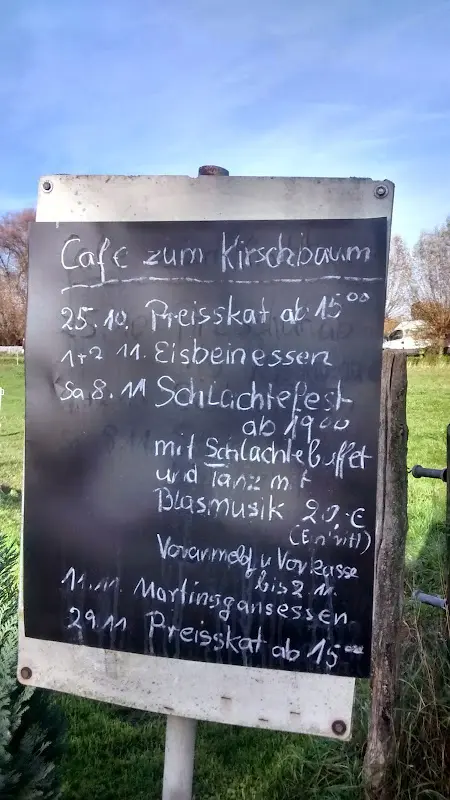 Cafe zum Kirschbaum
25.10. Preisskat ab 15⁰⁰
1+2 11. Eisbeinessen
Sa 8.11 Schlachtefest
ab 19⁰⁰
mit Schlachtebuffet
und Tanz mit
Blasmusik 20,-€
(Eintritt)
Voranmeld u Vorkasse
bis 2.11.
11.11. Martinsgansessen
29.11 Preisskat ab 15⁰⁰